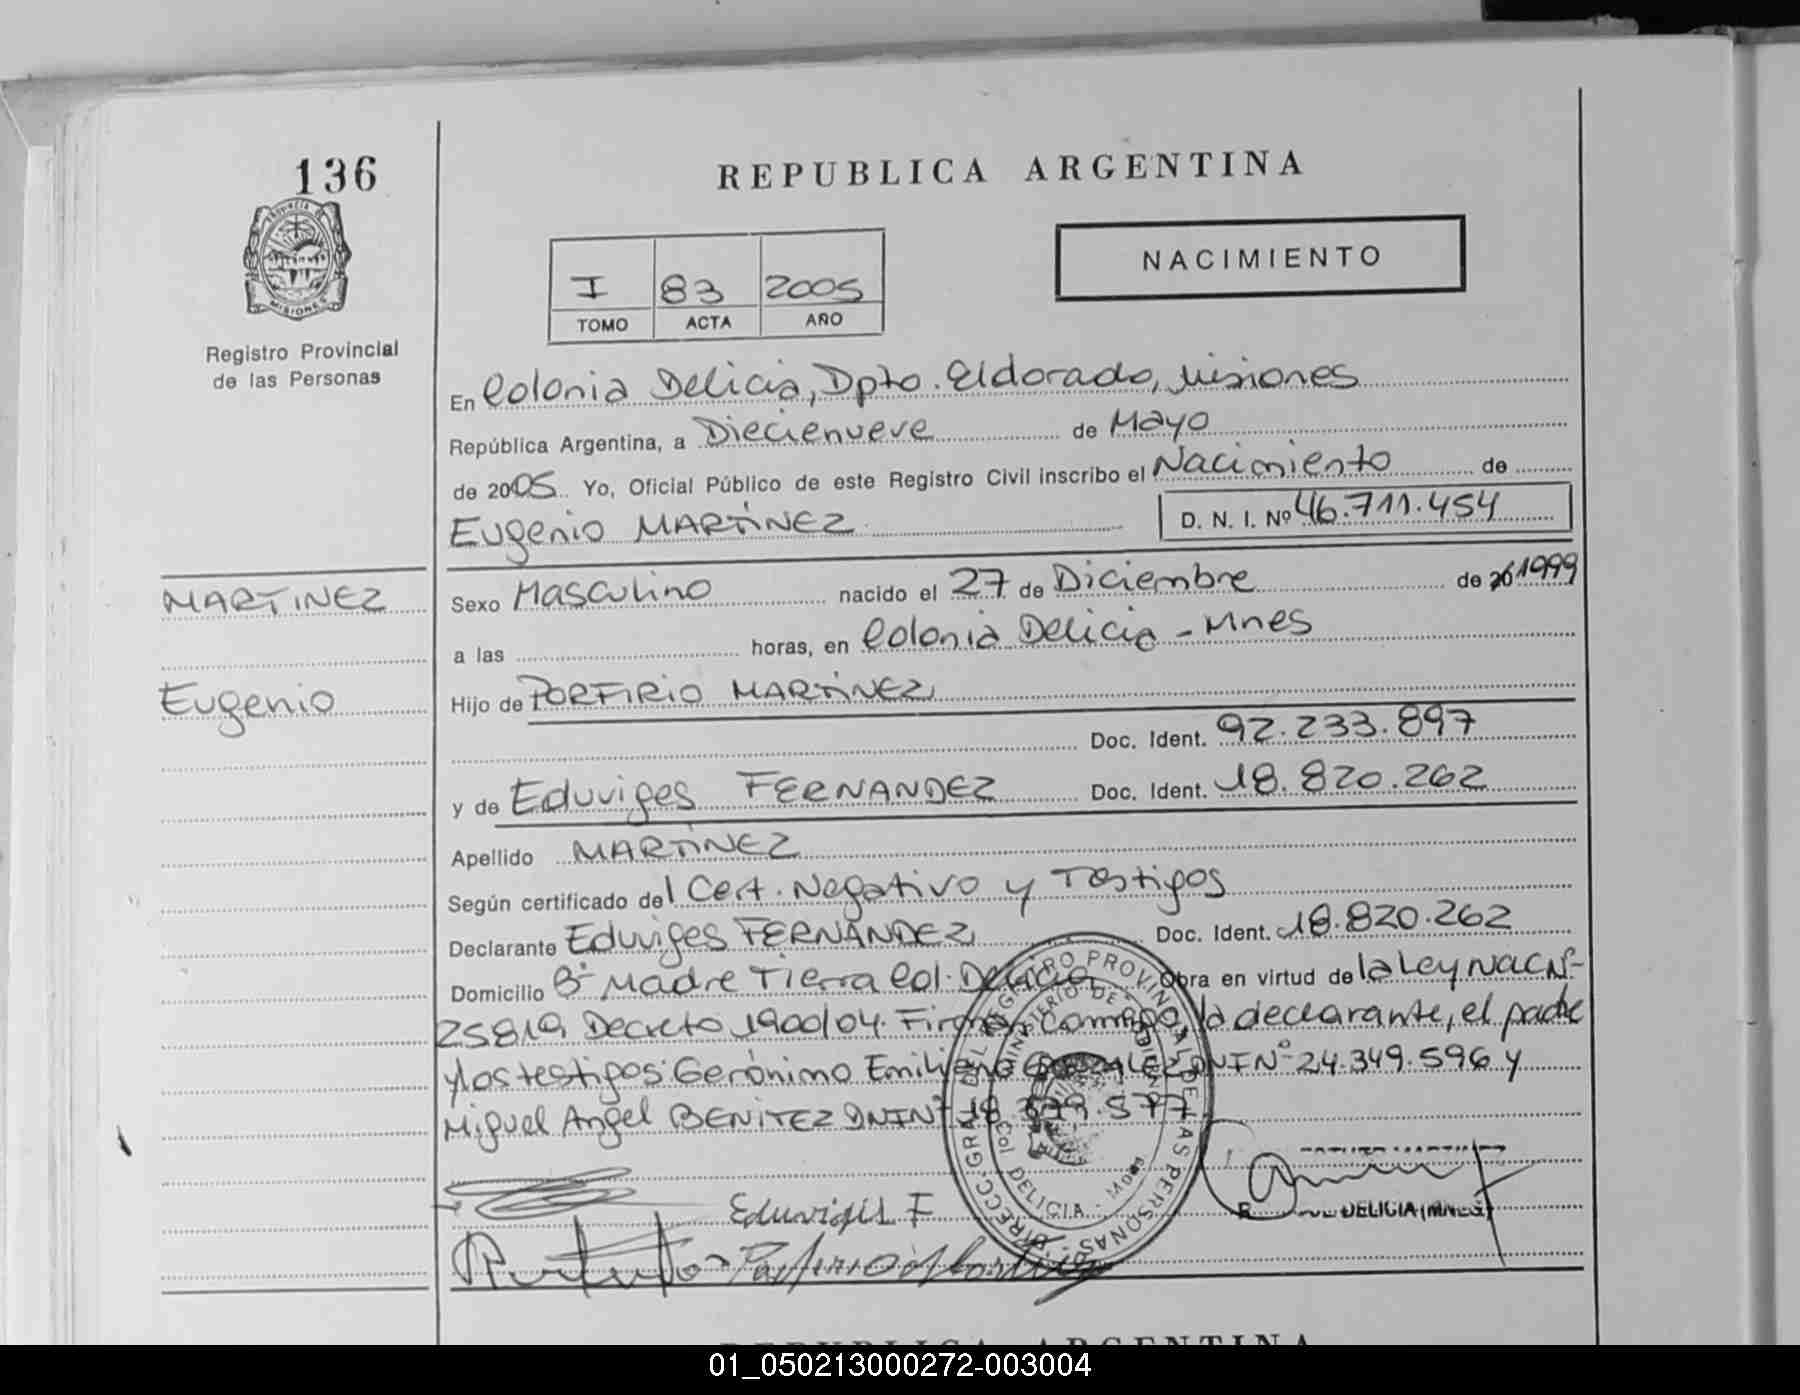 136
REPUBLICA ARGENTINA
PROVINCIA DE
MISIONES
Registro Provincial
de las Personas
NACIMIENTO
I 83 2005
TOMO ACTA AÑO
En Colonia Delicia, Dpto. Eldorado, Misiones
República Argentina, a Diecienueve de Mayo
de 2005 Yo, Oficial Público de este Registro Civil inscribo el Nacimiento de
Eugenio MARTINEZ D. N. I. Nº 46.711.454
MARTINEZ
Eugenio
Sexo Masculino nacido el 27 de Diciembre de 1999
a las horas, en Colonia Delicia - Mnes
Hijo de PORFIRIO MARTINEZ
Doc. Ident. 92.233.897
y de Eduviges FERNANDEZ Doc. Ident. 18.820.262
Apellido MARTINEZ
Según certificado del Cert. Negativo y Testigos
Declarante Eduviges FERNANDEZ Doc. Ident. 18.820.262
Domicilio Bº Madre Tierra Col. Delicia Obra en virtud de la Ley NAC Nº
25819 Decreto 1900/04. Firman Conmigo, la declarante, el padre
y los testigos: Gerónimo Emiliano GONZALEZ DNI Nº 24.349.596 y
Miguel Angel BENITEZ DNI Nº 18.
DIRECC. GRAL. DEL REGISTRO PROVINCIAL DE LAS PERSONAS
MINISTERIO DE
COL. DELICIA - Mnes
Eduvigis F
Porfirio Martinez
DELICIA (MNES)
REPUBLICA ARGENTINA
01_050213000272-003004